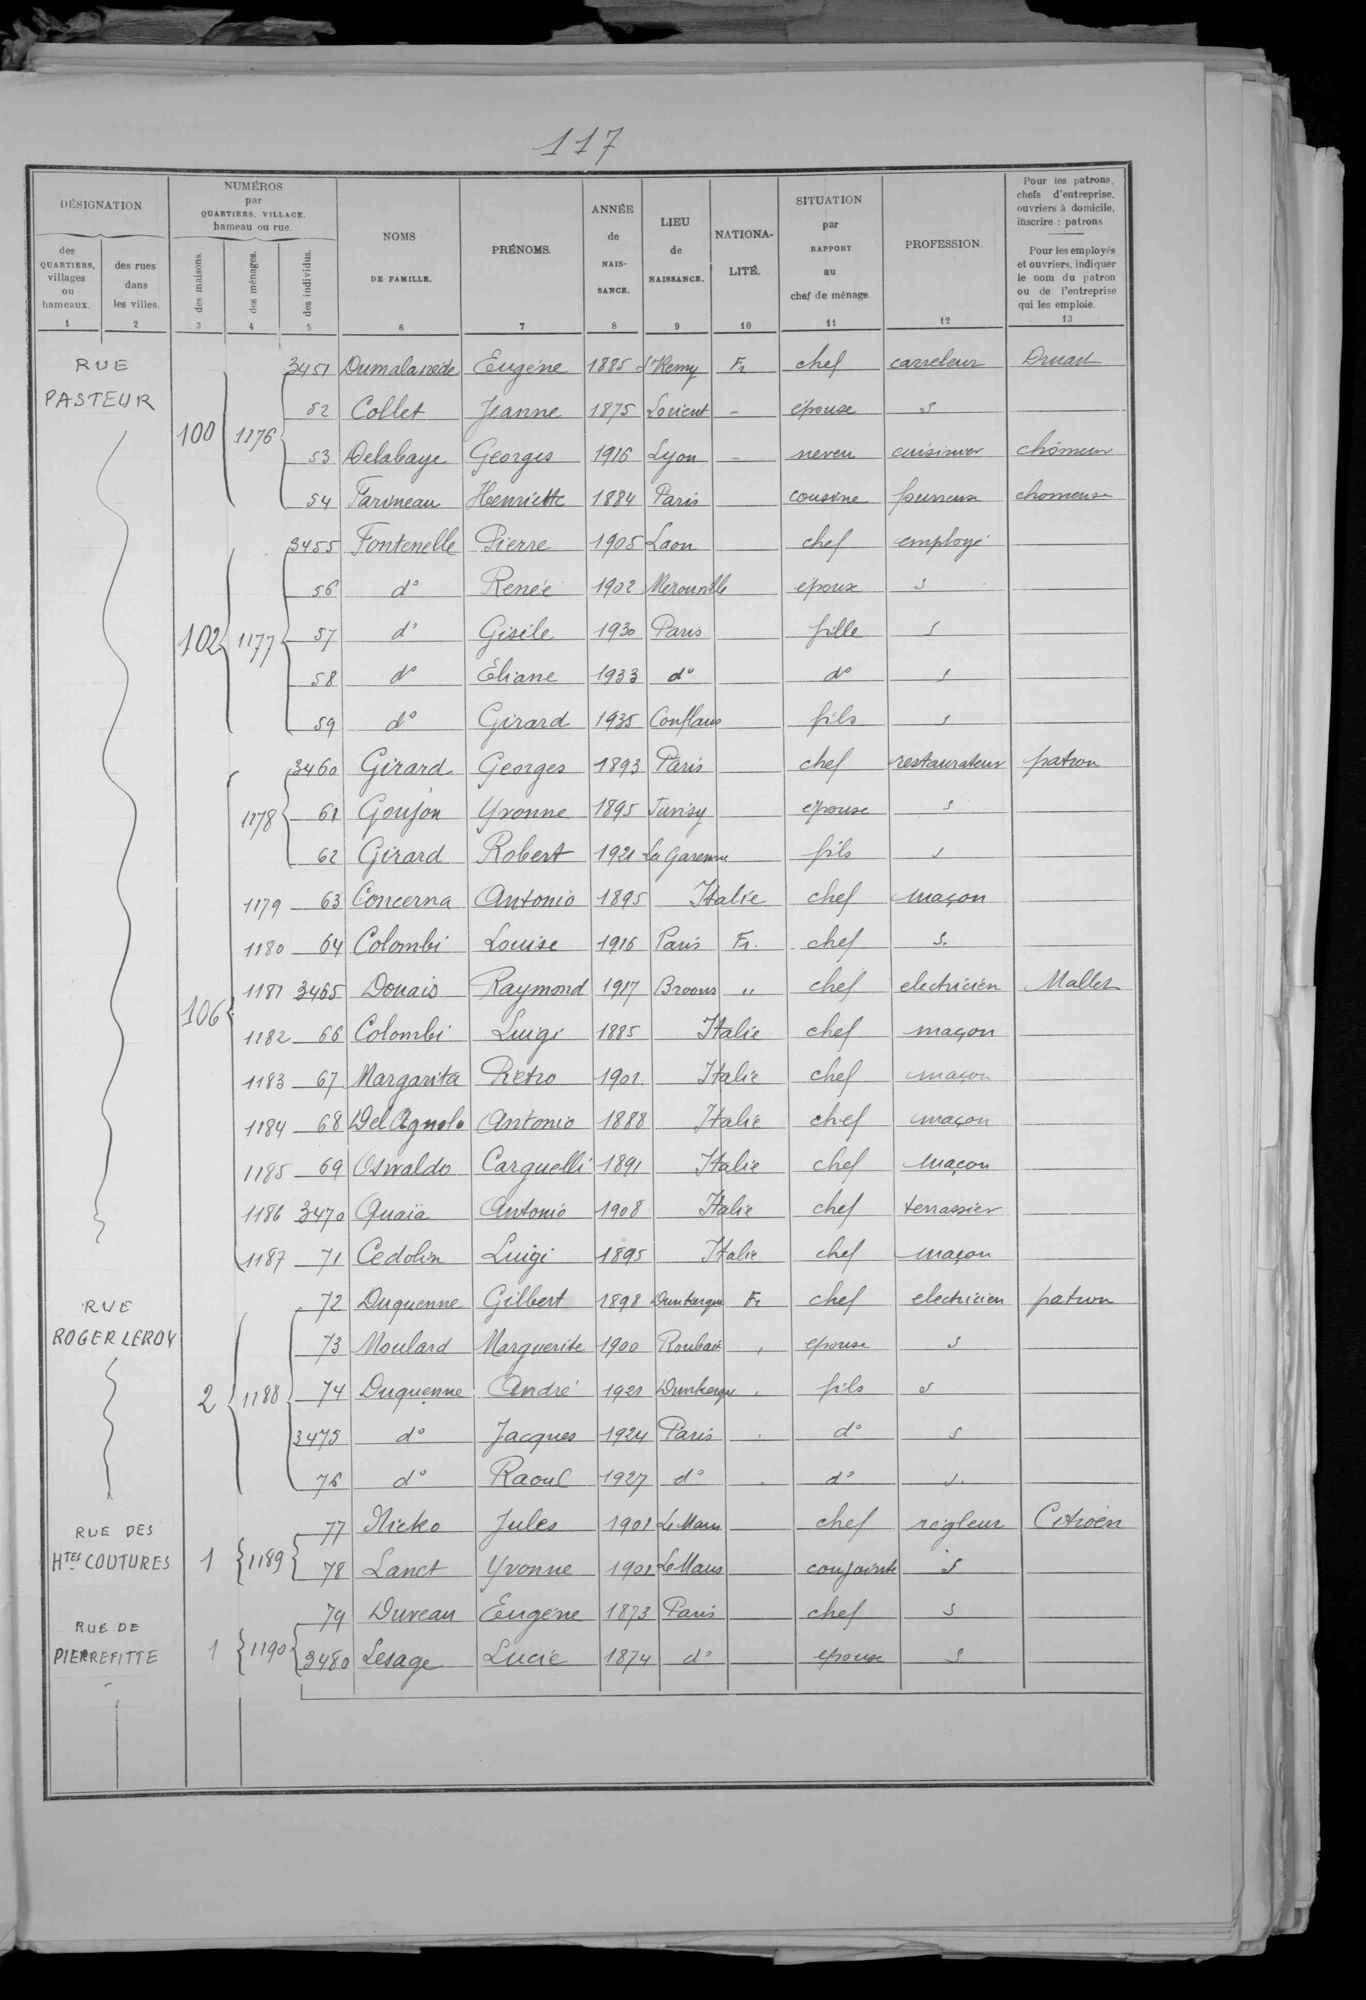 117
DÉSIGNATION
des QUARTIERS, villages ou hameaux.
des rues dans les villes.
NUMÉROS par QUARTIERS, VILLAGE, hameau ou rue.
des maisons.
des ménages.
des individus.
NOMS DE FAMILLE.
PRÉNOMS.
ANNÉE de NAIS-SANCE.
LIEU de NAISSANCE.
NATIONA-LITÉ.
SITUATION par RAPPORT au chef de ménage.
PROFESSION.
Pour les patrons, chefs d'entreprise, ouvriers à domicile, inscrire : patrons
Pour les employés et ouvriers, indiquer le nom du patron ou de l'entreprise qui les emploie.
1 2 3 4 5 6 7 8 9 10 11 12 13
RUE PASTEUR
100 1176
3451 Eugène 1885 St Remy Fr chef carreleur Druart
52 Collet Jeanne 1875 Lorient - épouse s
53 Delabaye Georges 1916 Lyon - neveu cuisinier chômeur
54 Farineau Henriette 1884 Paris cousine chomeuse
102 1177
3455 Fontenelle Pierre 1905 Laon chef employé
56 d° Renée 1902 Mérouville époux s
57 d° Gisèle 1930 Paris fille s
58 d° Eliane 1933 d° d° s
59 d° Girard 1935 Conflans fils s
106
1178
3460 Girard Georges 1893 Paris chef restaurateur patron
61 Goujon Yvonne 1895 Juvisy épouse s
62 Girard Robert 1921 La Garenne fils s
1179 63 Concerna Antonio 1895 Italie chef maçon
1180 64 Colombi Louise 1916 Paris Fr. chef s.
1181 3465 Douais Raymond 1917 Broons " chef electricien Mallet
1182 66 Colombi Luigi 1885 Italie chef maçon
1183 67 Margarita Pietro 1901 Italie chef maçon
1184 68 Del Agnolo Antonio 1888 Italie chef maçon
1185 69 Osvaldo Carguelli 1891 Italie chef maçon
1186 3470 Quaïa Antonio 1908 Italie chef terrassier
1187 71 Cedolin Luigi 1895 Italie chef maçon
RUE ROGER LEROY
2 1188
72 Duquenne Gilbert 1898 Dunkerque Fr chef electricien patron
73 Moulard Marguerite 1900 Roubaix epouse s
74 Duquenne André 1921 Dunkerque fils s
3475 d° Jacques 1924 Paris d° s
76 d° Raoul 1927 d° d° s.
RUE DES Htes COUTURES
1 1189
77 Jules 1901 Le Mans chef régleur Citroën
78 Lanct Yvonne 1901 Le Mans conjointe s
RUE DE PIERREFITTE
1 1190
79 Duveau Eugène 1873 Paris chef s
3480 Lesage Lucie 1874 d° epouse s